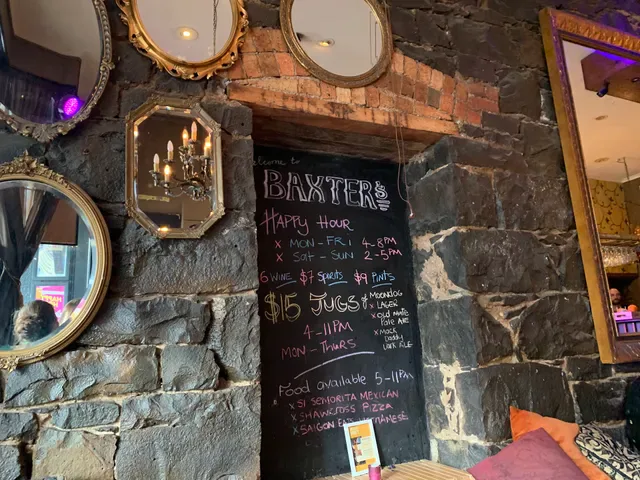 Welcome to
BAXTERS
HAPPY HOUR
x MON - FRI 4-8PM
x SAT - SUN 2-5PM
6 WINE $7 SPIRITS $9 PINTS
$15 JUGS
MOONDOG
LAGER
x OLD MATE
PALE ALE
x MACK
DADDY
DARK ALE
4-11PM
MON - THURS
FOOD available 5-11PM
x SI SENORITA MEXICAN
x SHAWCROSS PIZZA
x SAIGON